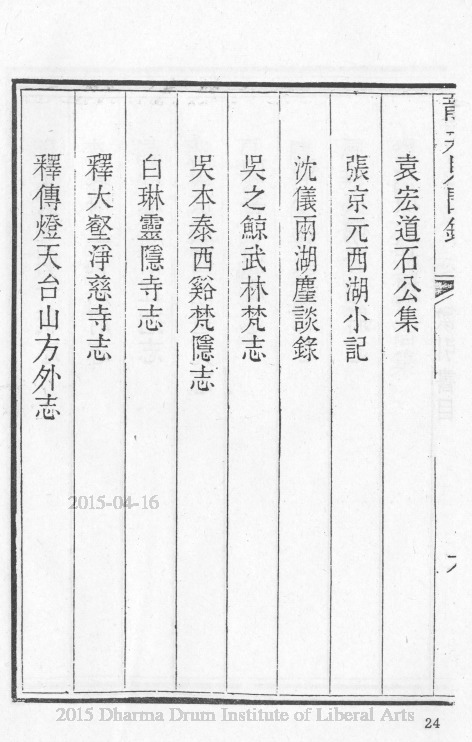 袁宏道石公集
張京元西湖小記
沈儀兩湖麈談錄
吳之鯨武林梵志
吳本泰西谿梵隱志
白珩靈隱寺志
釋大壑淨慈寺志
釋傳燈天台山方外志
2015-04-16
2015 Dharma Drum Institute of Liberal Arts
24